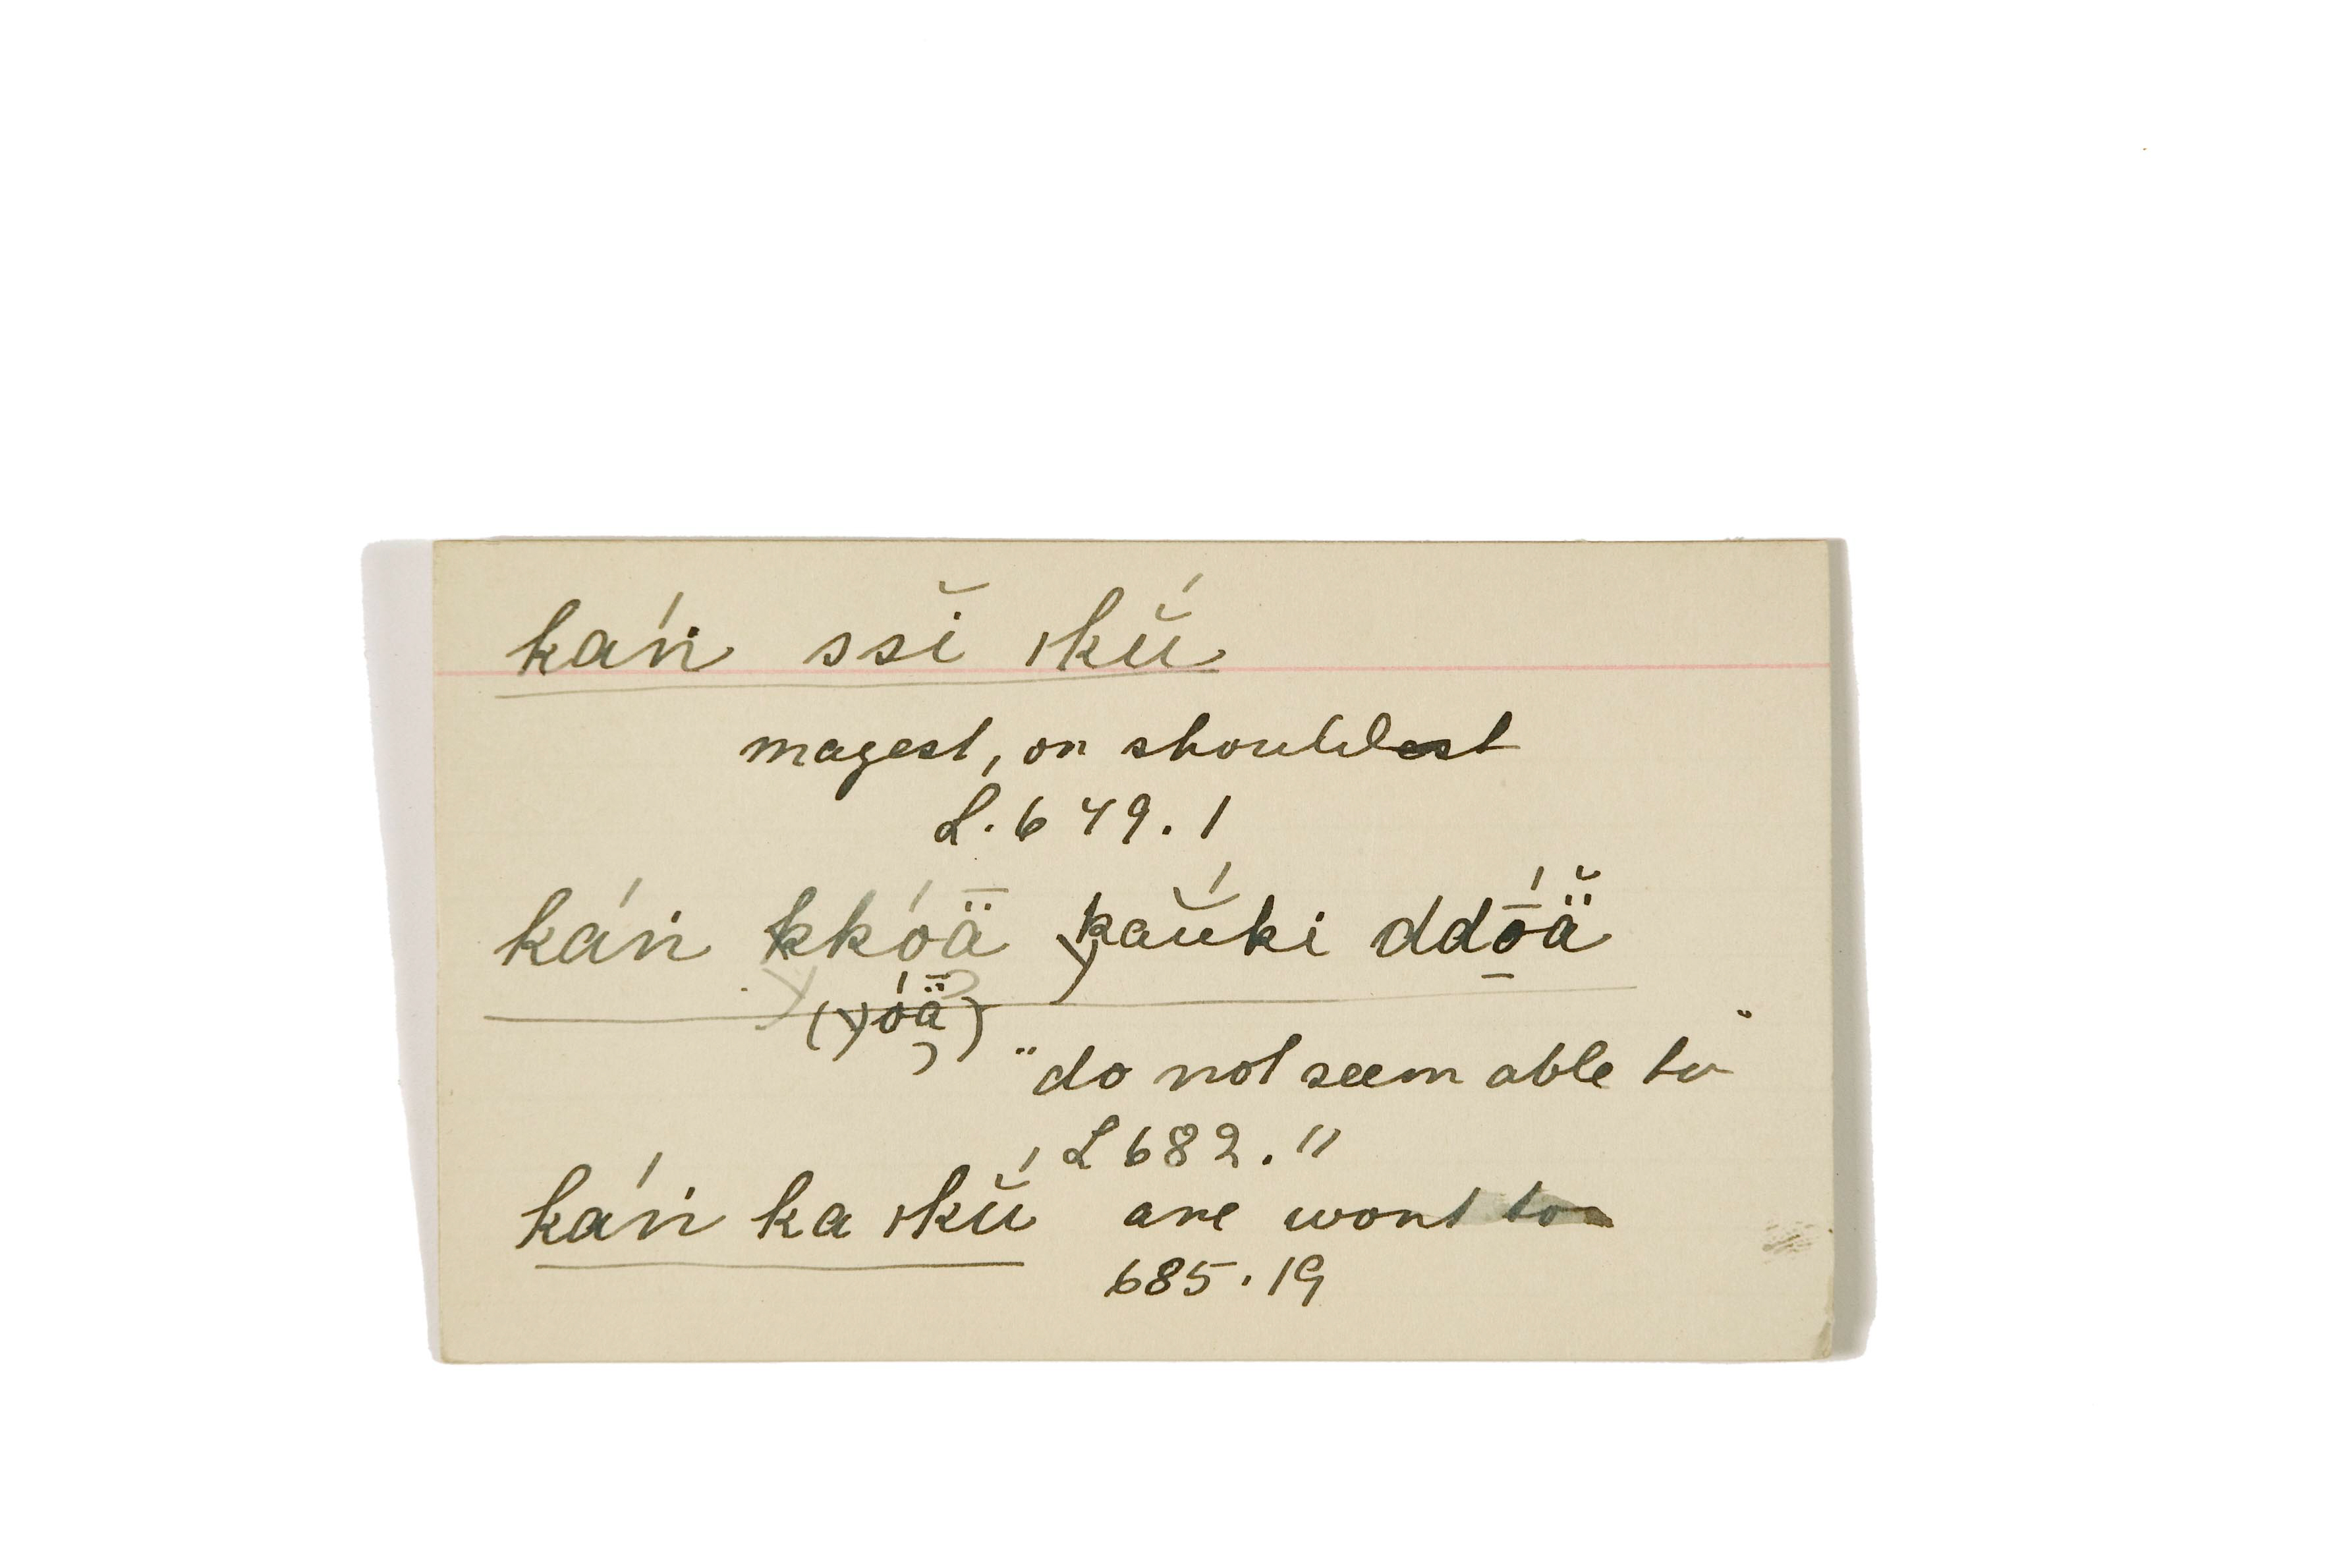 ka̍ṅ ssĭ ıkŭ́
mayest, or shouldest
L. 649. 1
ka̍ṅ kkó̤ǟ kaŭ́ki ddṓ̠ä̆
(óǟ)
"do not seem able to"
L 682. 11
ka̍ṅ ka ıkŭ́ are wont to
685. 19